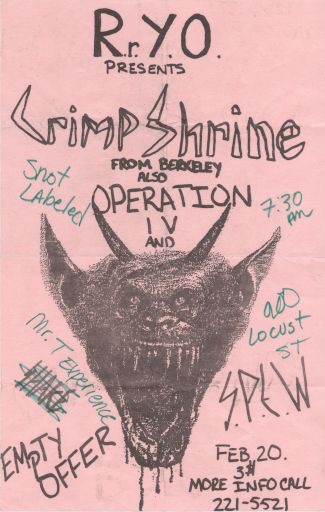 R.r.Y.O.
PRESENTS
CrimpShrine
FROM BERKELEY
ALSO
OPERATION
IV
AND
Snot
LAbeled
7:30
pm
Mr. T Experience
LOCUST
ST
S.P.E.W
EMPTY
OFFER
FEB. 20.
3$
MORE INFO CALL
221-5521